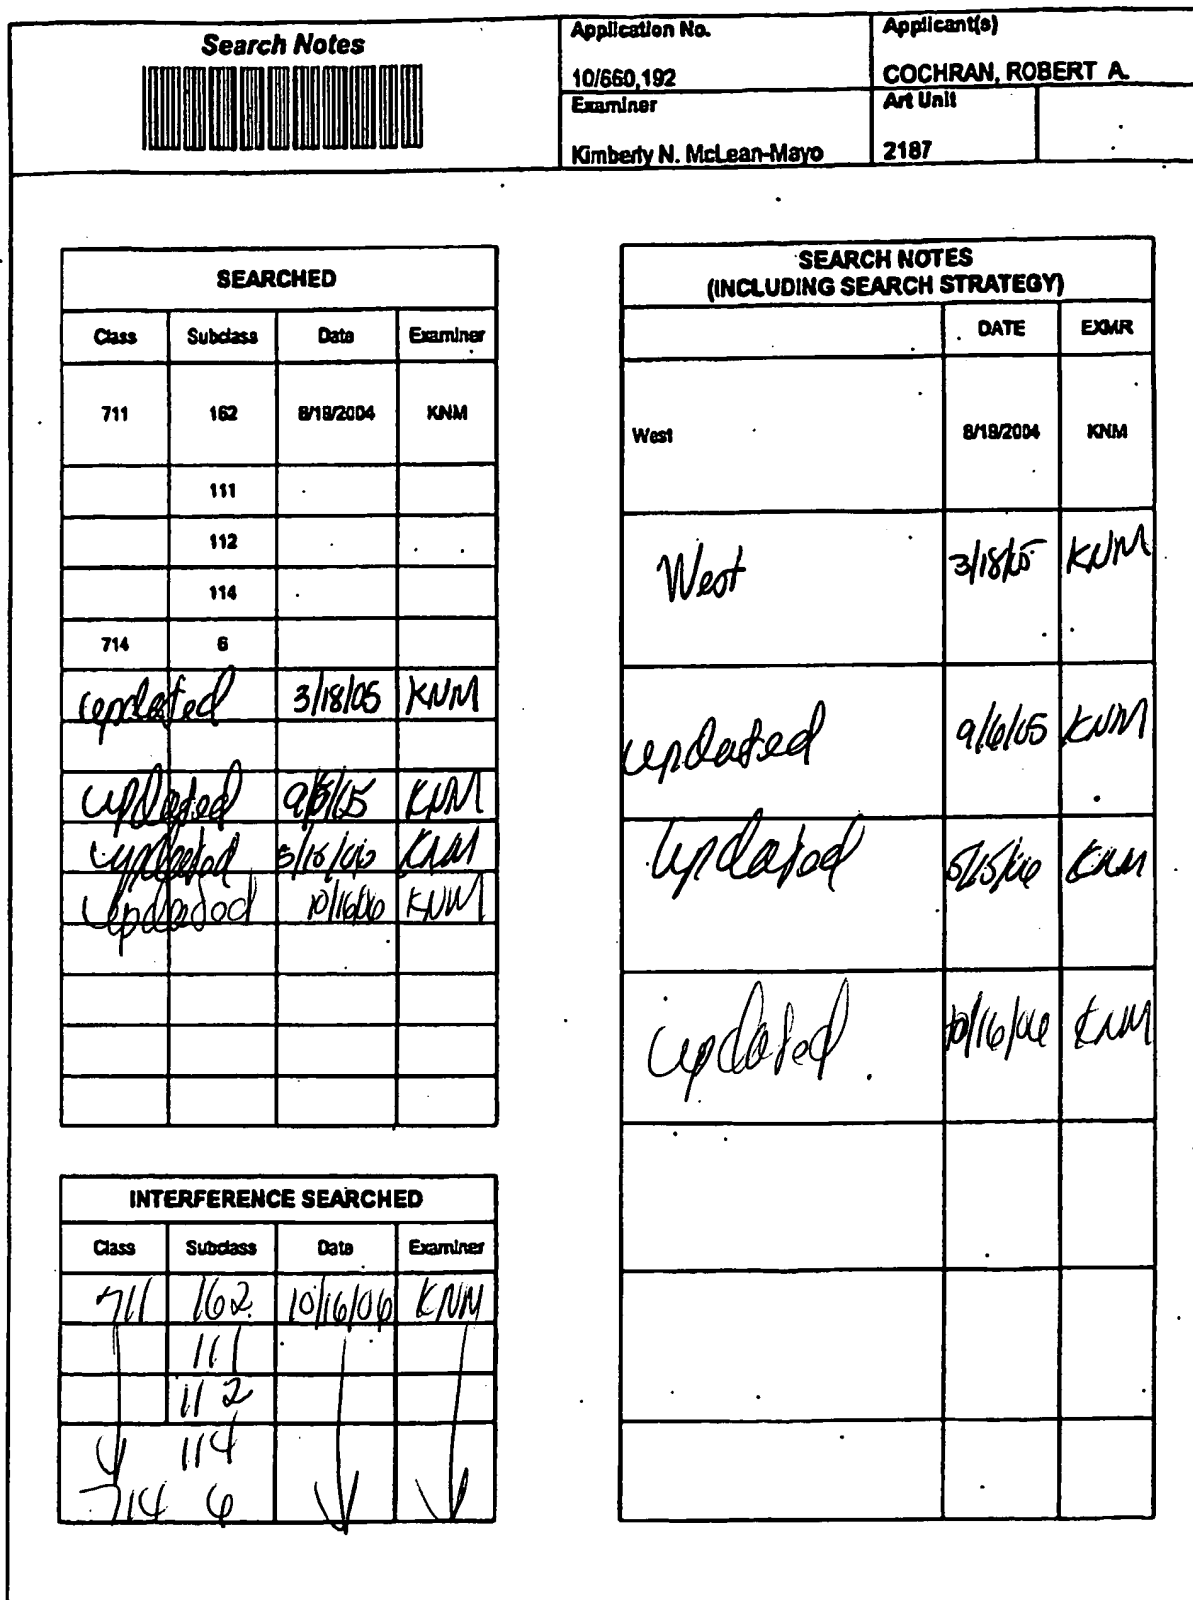 Search Notes
Application No.
10/660,192
Applicant(s)
COCHRAN, ROBERT A.
Examiner
Kimberly N. McLean-Mayo
Art Unit
2187
SEARCHED
Class Subclass Date Examiner
711 162 8/18/2004 KNM
111
112
114
714 6
updated 3/18/05 KNM
updated KNM
updated 5/15/06 KNM
updated 10/16/06 KNM
INTERFERENCE SEARCHED
Class Subclass Date Examiner
711 162 10/16/06 KNM
111
112
114
714 6
SEARCH NOTES
(INCLUDING SEARCH STRATEGY)
DATE EXMR
West 8/18/2004 KNM
West 3/18/05 KNM
updated 9/6/05 KNM
updated 5/15/06 KNM
updated 10/16/06 KNM